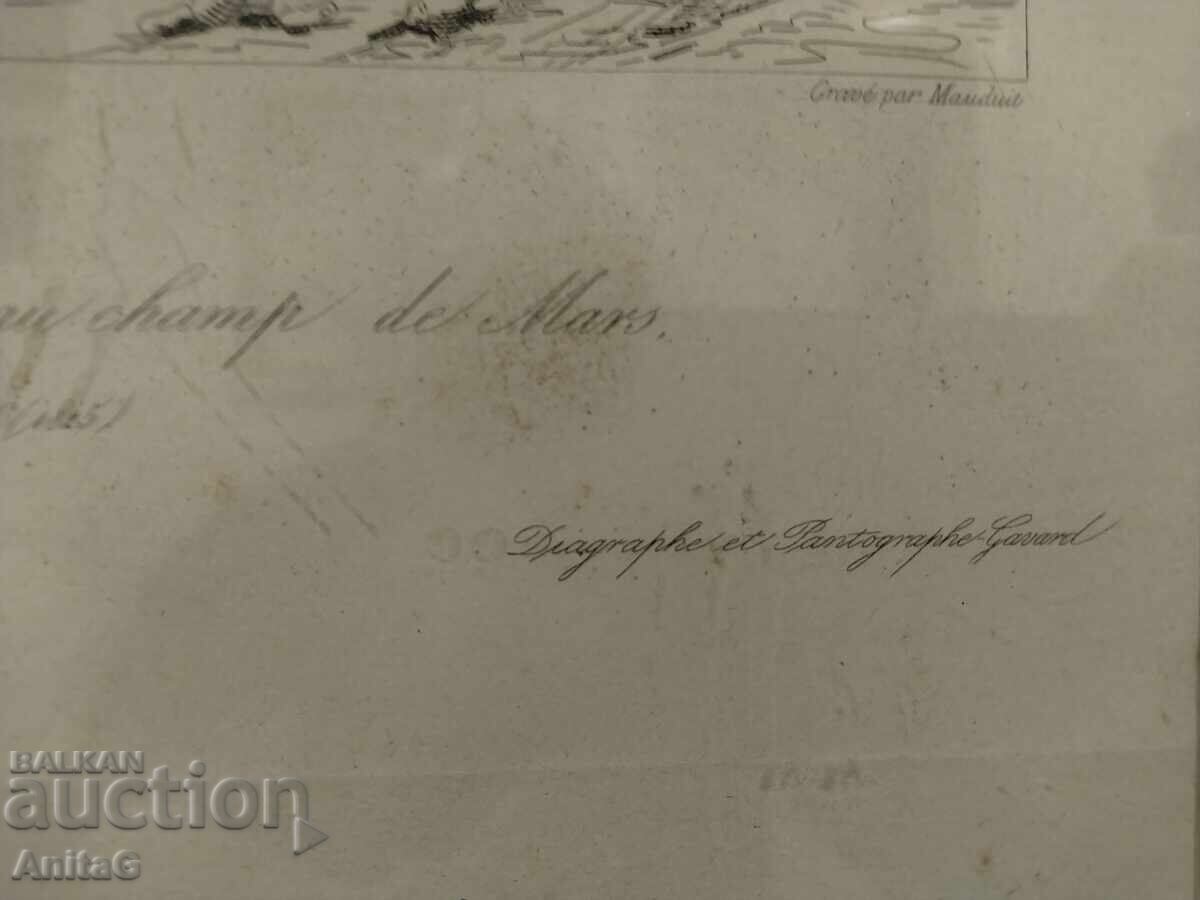 Gravé par Mauduit
au champ de Mars.
Diagraphe et Pantographe Gavard
BALKAN
auction
AnitaG